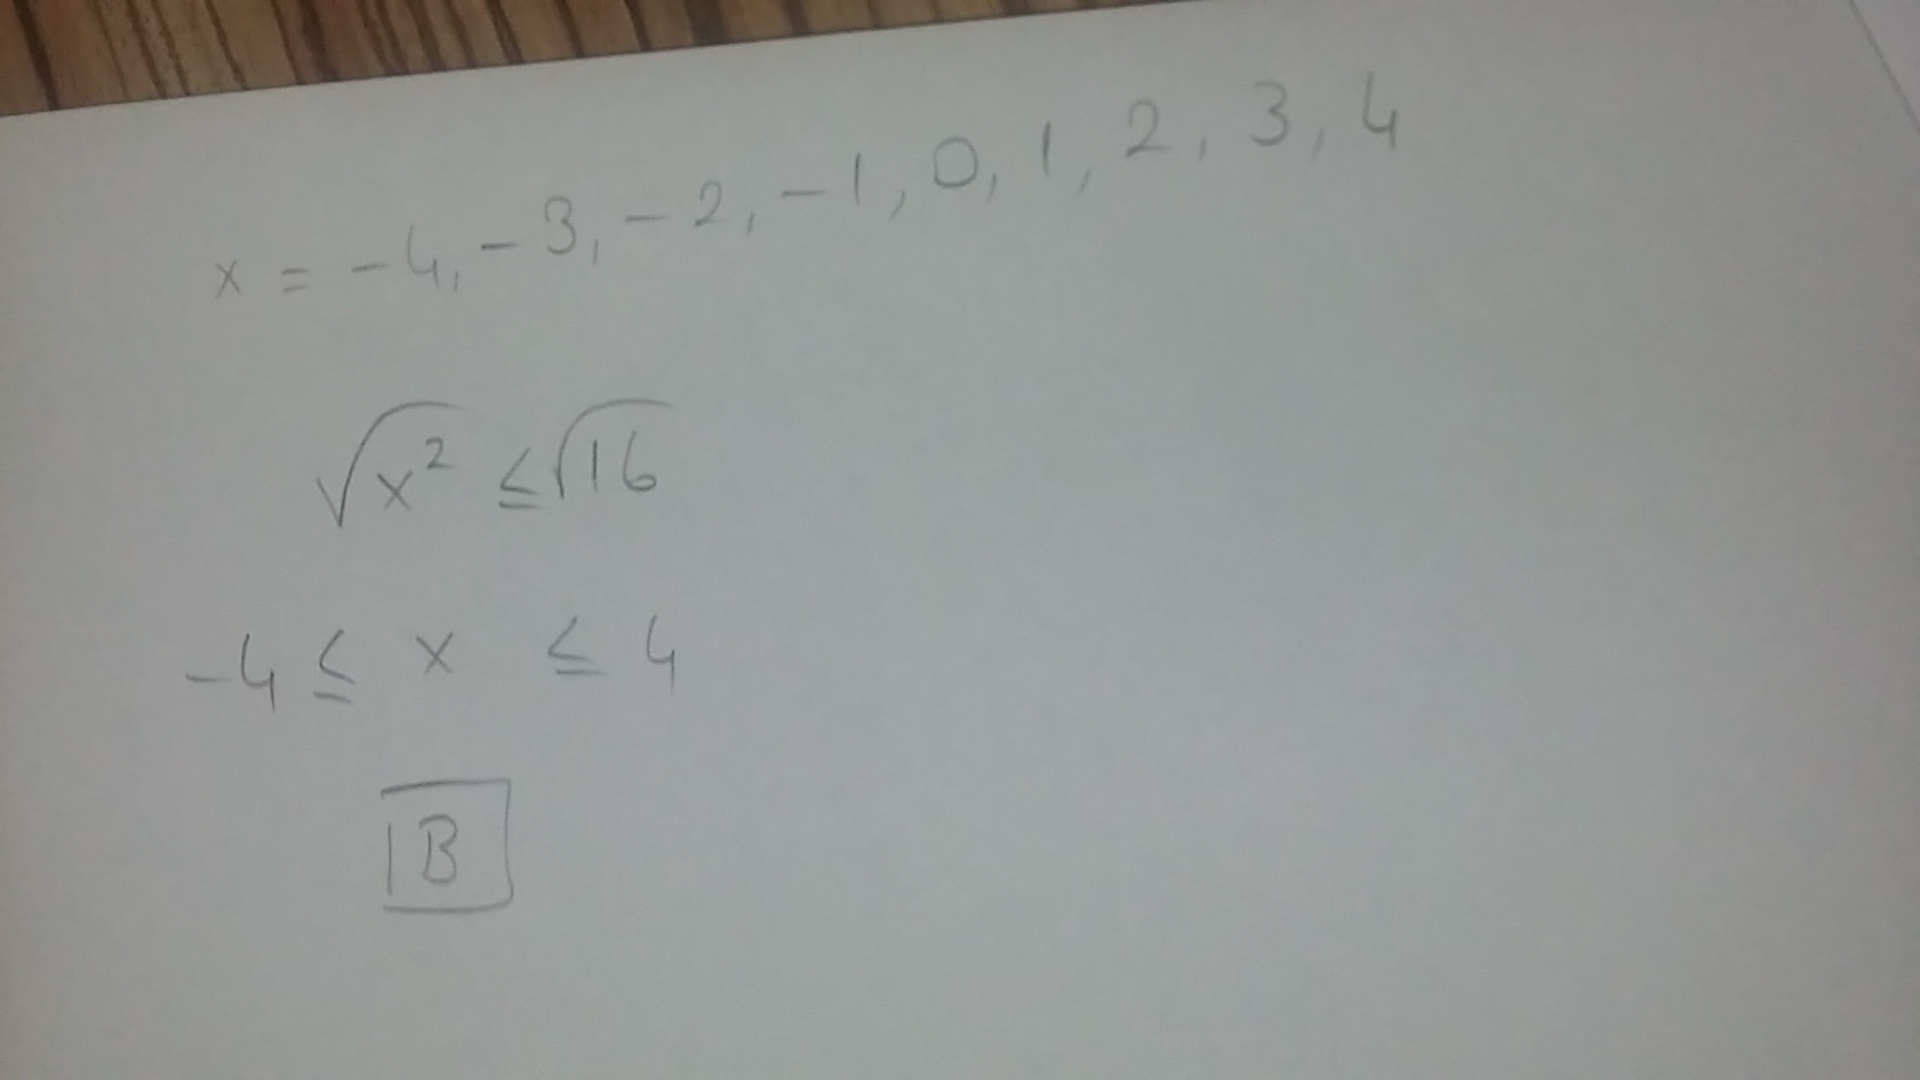 x = -4, -3, -2, -1, 0, 1, 2, 3, 4
√x² ≤ √16
-4 ≤ x ≤ 4
B